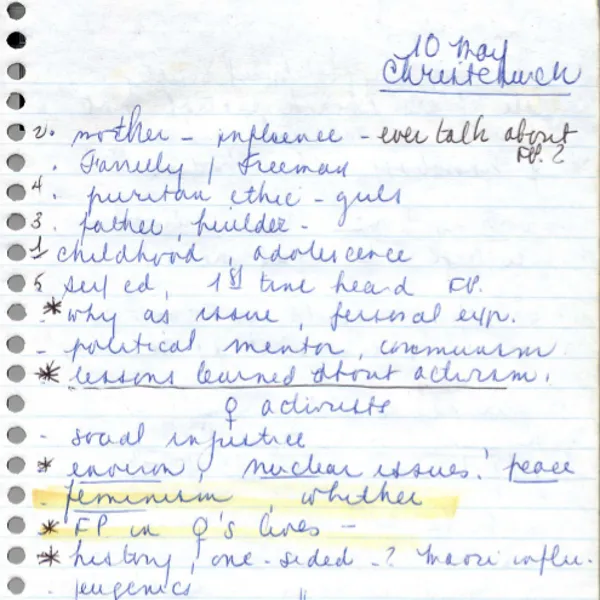 10 May
Christchurch
2. mother - influence - ever talk about
FP. ?
. Family / Freeman
4. puritan ethic - guilt
3. father, builder -
1 childhood, adolescence
5 self ed, 1st time heard FP.
* why as issue, personal exp.
- political mentor, communism
* lessons learned about activism.
♀ activists
- social injustice
* environ, nuclear issues. peace
. feminism, whether
* FP in ♀'s lives -
* history, one-sided - ? Maori influ.
. eugenics